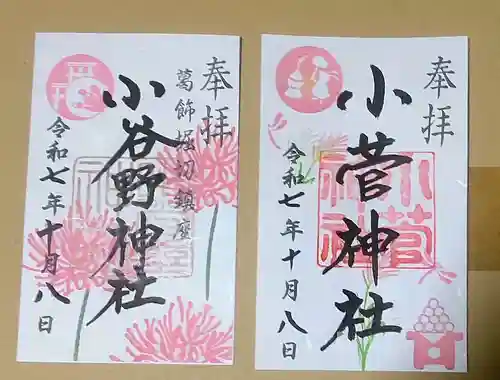 奉拝
葛飾堀切鎮座
小谷野神社
令和七年十月八日
奉拝
小菅神社
令和七年十月八日